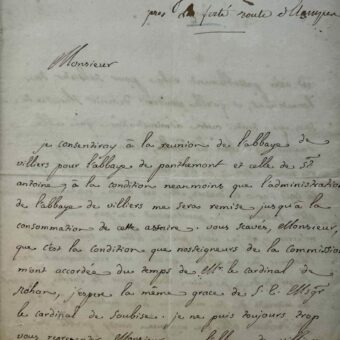 près la ferté route d'Etampes
Monsieur
je consentiray à la reunion de l'abbaye de
villiers pour l'abbaye de panthemont et celle de St
antoine, à la condition neanmoins que l'administration
de l'abbaye de villiers me sera remise jusqu'à la
consommation de cette affaire. vous scavés, Monsieur,
que c'est la condition que nosseigneurs de la commission
m'ont accordée du temps de Mr le cardinal de
Rohan, j'espere la même grace de S. E. Msgr
le cardinal de Soubise. je ne puis toujours trop
vous representer Monsieur